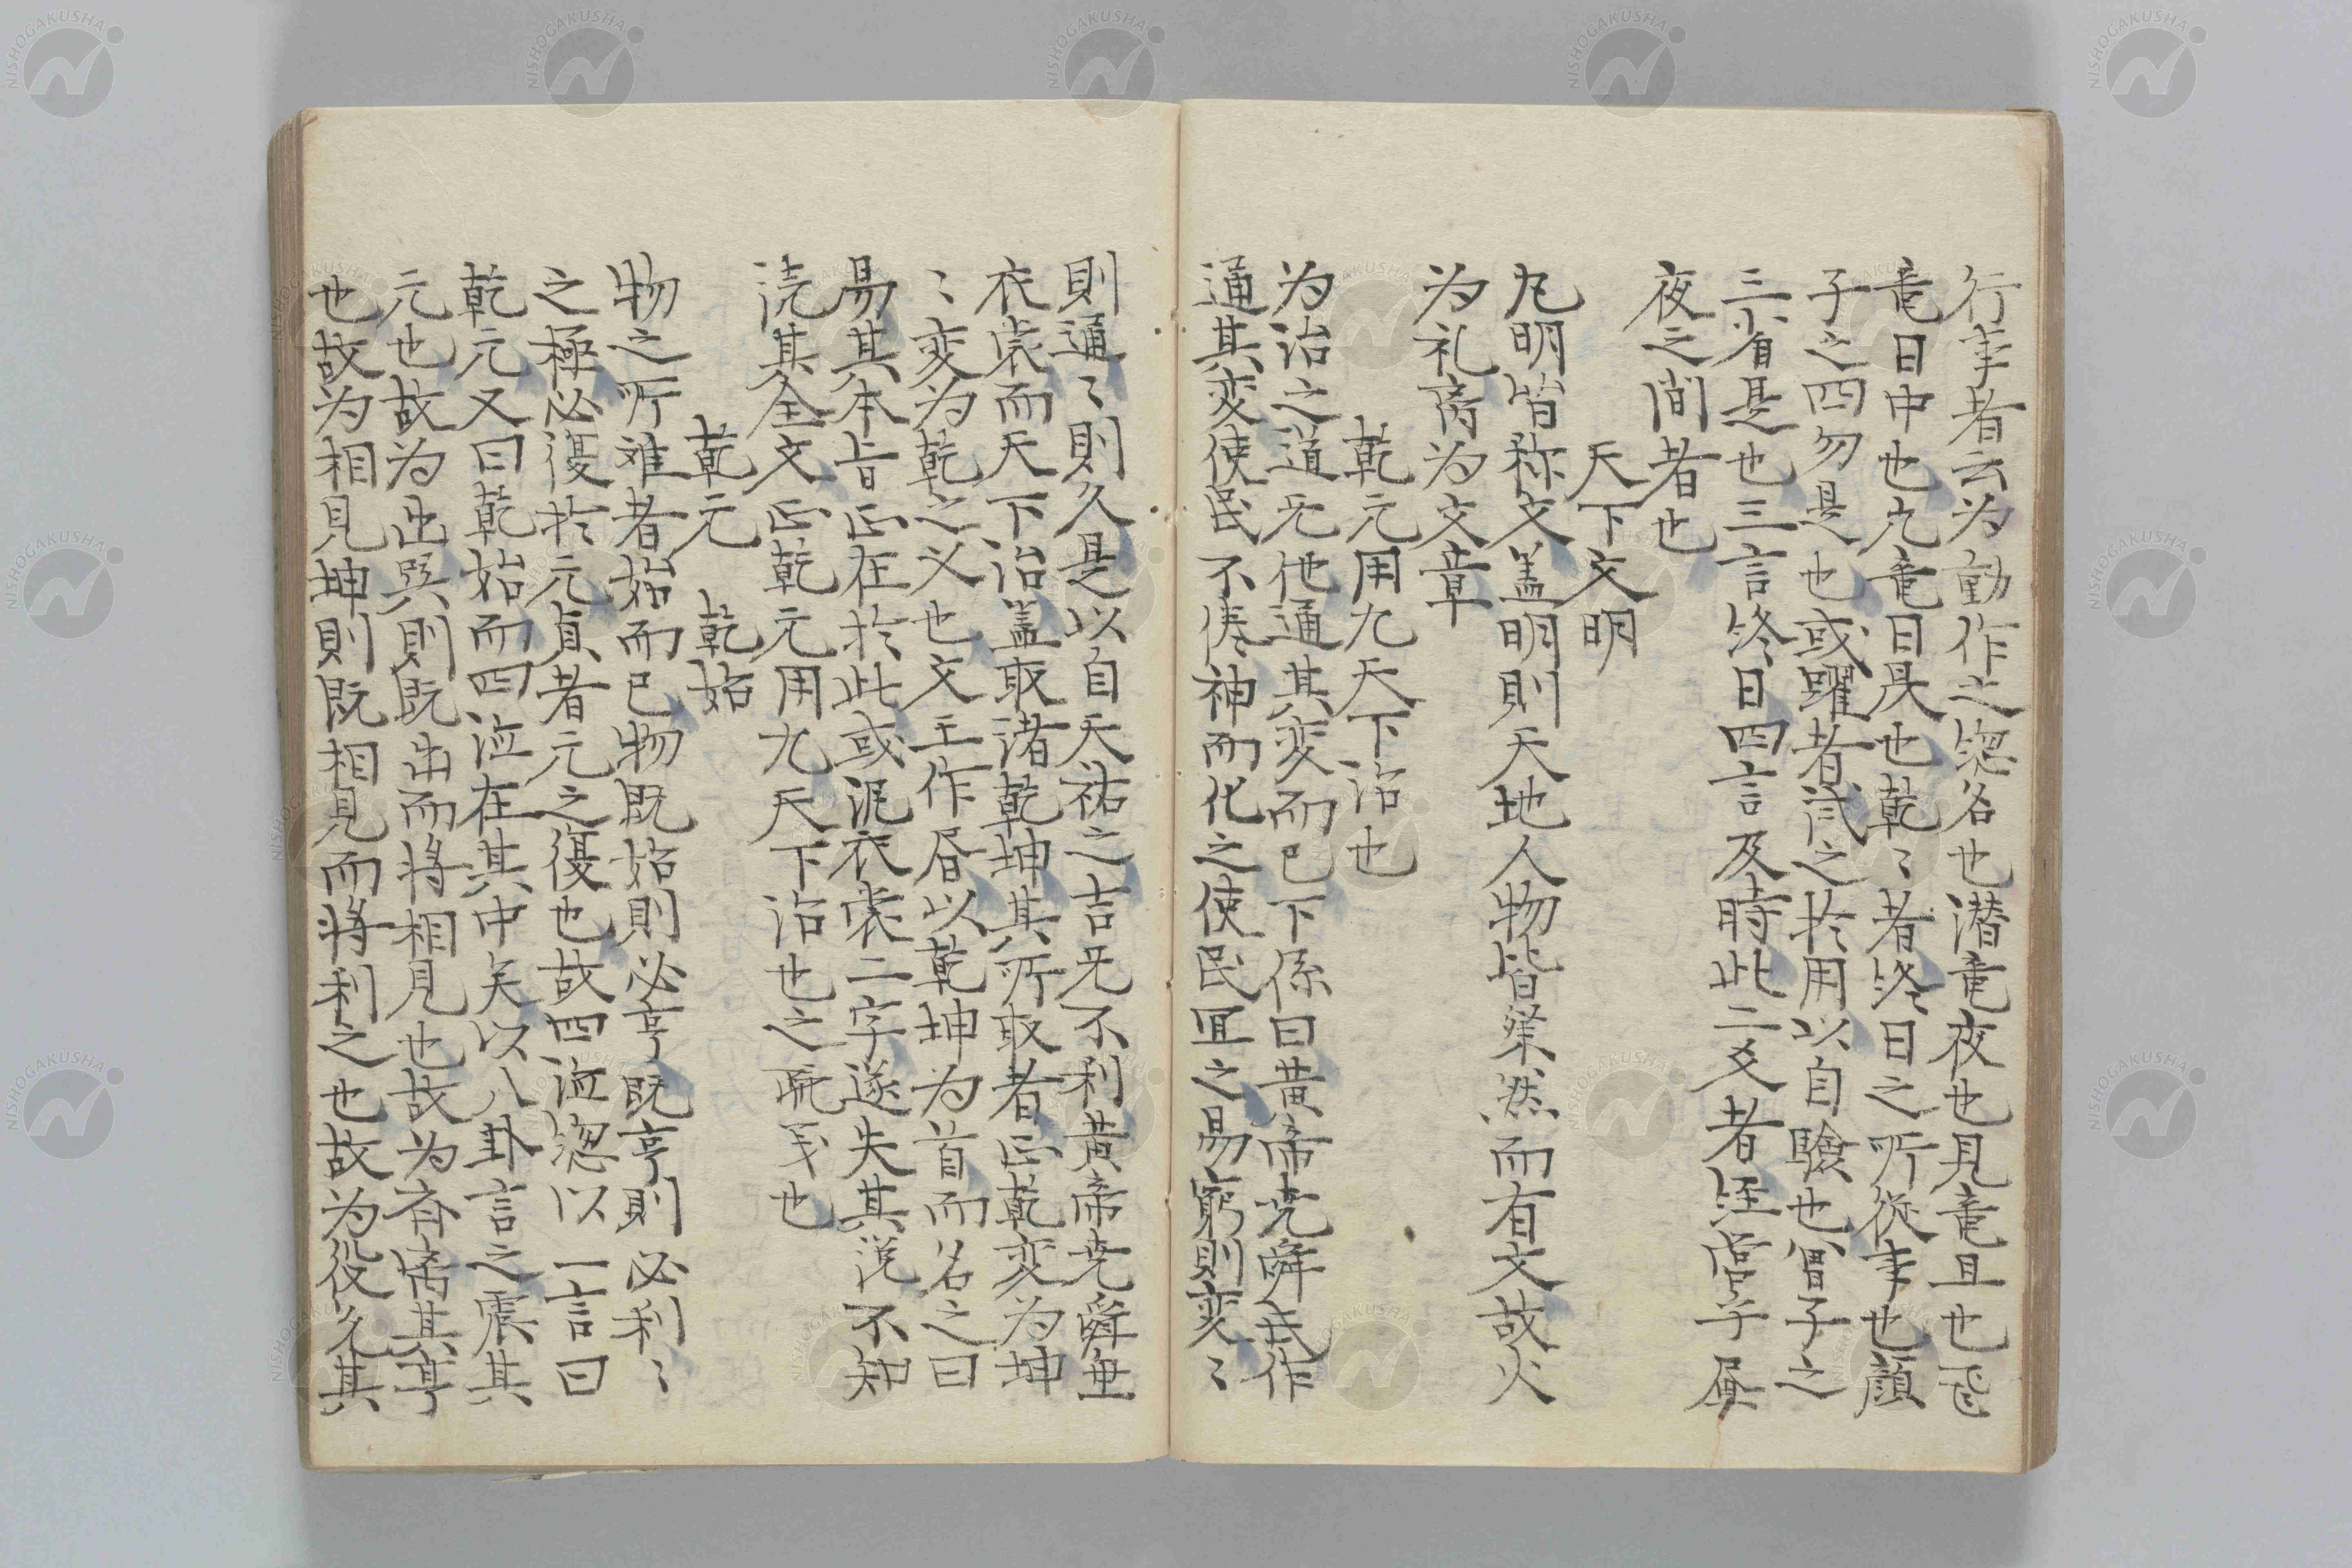 行事者云为動作之惣名也潜竜夜也見竜旦也飛
竜日中也亢竜日昃也乾〻者終日之所從事也顔
子之四勿是也或躍者試之於用以自驗也曽子之
三省是也三言終日四言及時此二爻者経営乎昼
夜之間者也
天下文明
凡明皆称文蓋明則天地人物皆粲然而有文故火
为礼离为文章
乾元用九天下治也
为治之道无他通其変而已下係曰黄帝尭舜氏作
通其変使民不倦神而化之使民宜之易窮則変〻
則通〻則久是以自天祐之吉无不利黄帝尭舜垂
衣裳而天下治蓋取諸乾坤其所取者正乾変为坤
〻変为乾之义也文王作昏以乾坤为首而名之曰
易其本旨正在於此或泥衣裳二字遂失其説不知
澆其全文正乾元用九天下治也之疏戔也
乾元 乾始
物之所难者始而已物既始則必亨既亨則必利〻
之極必復於元貞者元之復也故四德惣以一言曰
乾元又曰乾始而四德在其中矣以八卦言之震其
元也故为出巽則既出而将相見也故为齐离其亨
也故为相見坤則既相見而将利之也故为役兑其